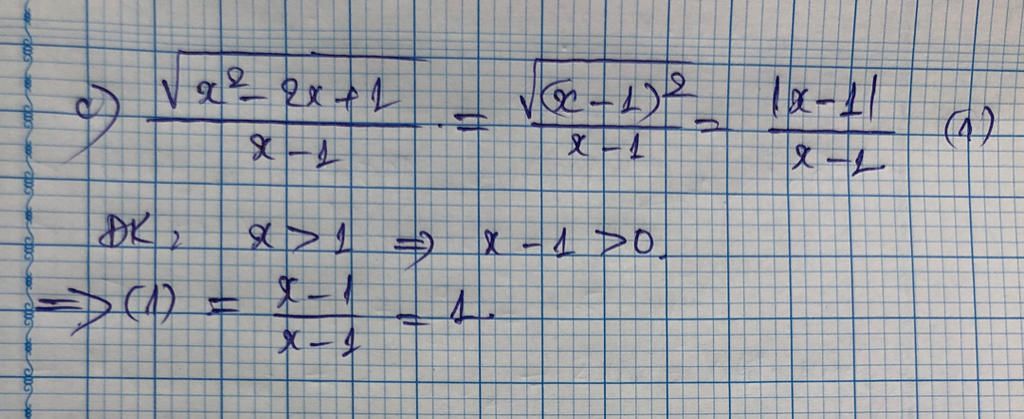 c) \frac{\sqrt{x^2 - 2x + 1}}{x - 1} = \frac{\sqrt{(x - 1)^2}}{x - 1} = \frac{|x - 1|}{x - 1} (1)
ĐK, x > 1 ⇒ x - 1 > 0.
⇒ (1) = \frac{x - 1}{x - 1} = 1.